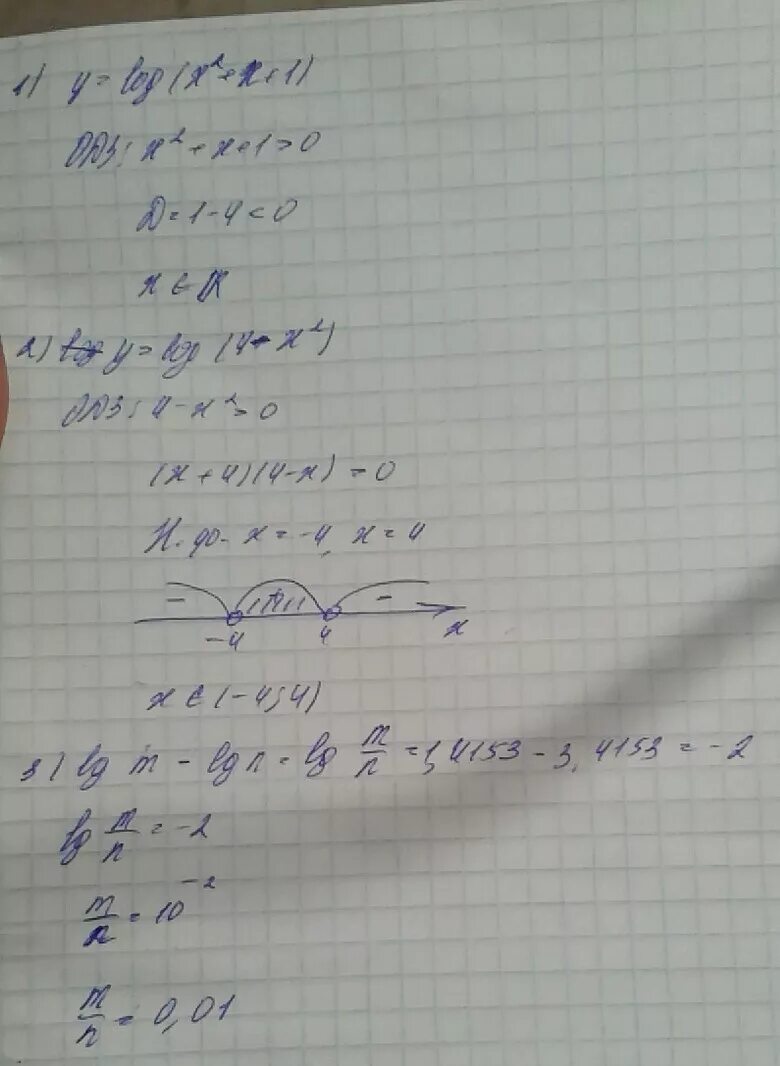 1) y = log(x²+x+1)
ОДЗ: x²+x+1>0
D=1-4<0
x ∈ R
2) y = log (4-x²)
ОДЗ: 4-x²>0
(x+4)(4-x) = 0
Н. ф. x = -4, x = 4
- + -
-4 4 x
x ∈ (-4; 4)
3) lg m - lg n = lg m/n = 1,4153 - 3,4153 = -2
lg m/n = -2
m/n = 10⁻²
m/n = 0,01